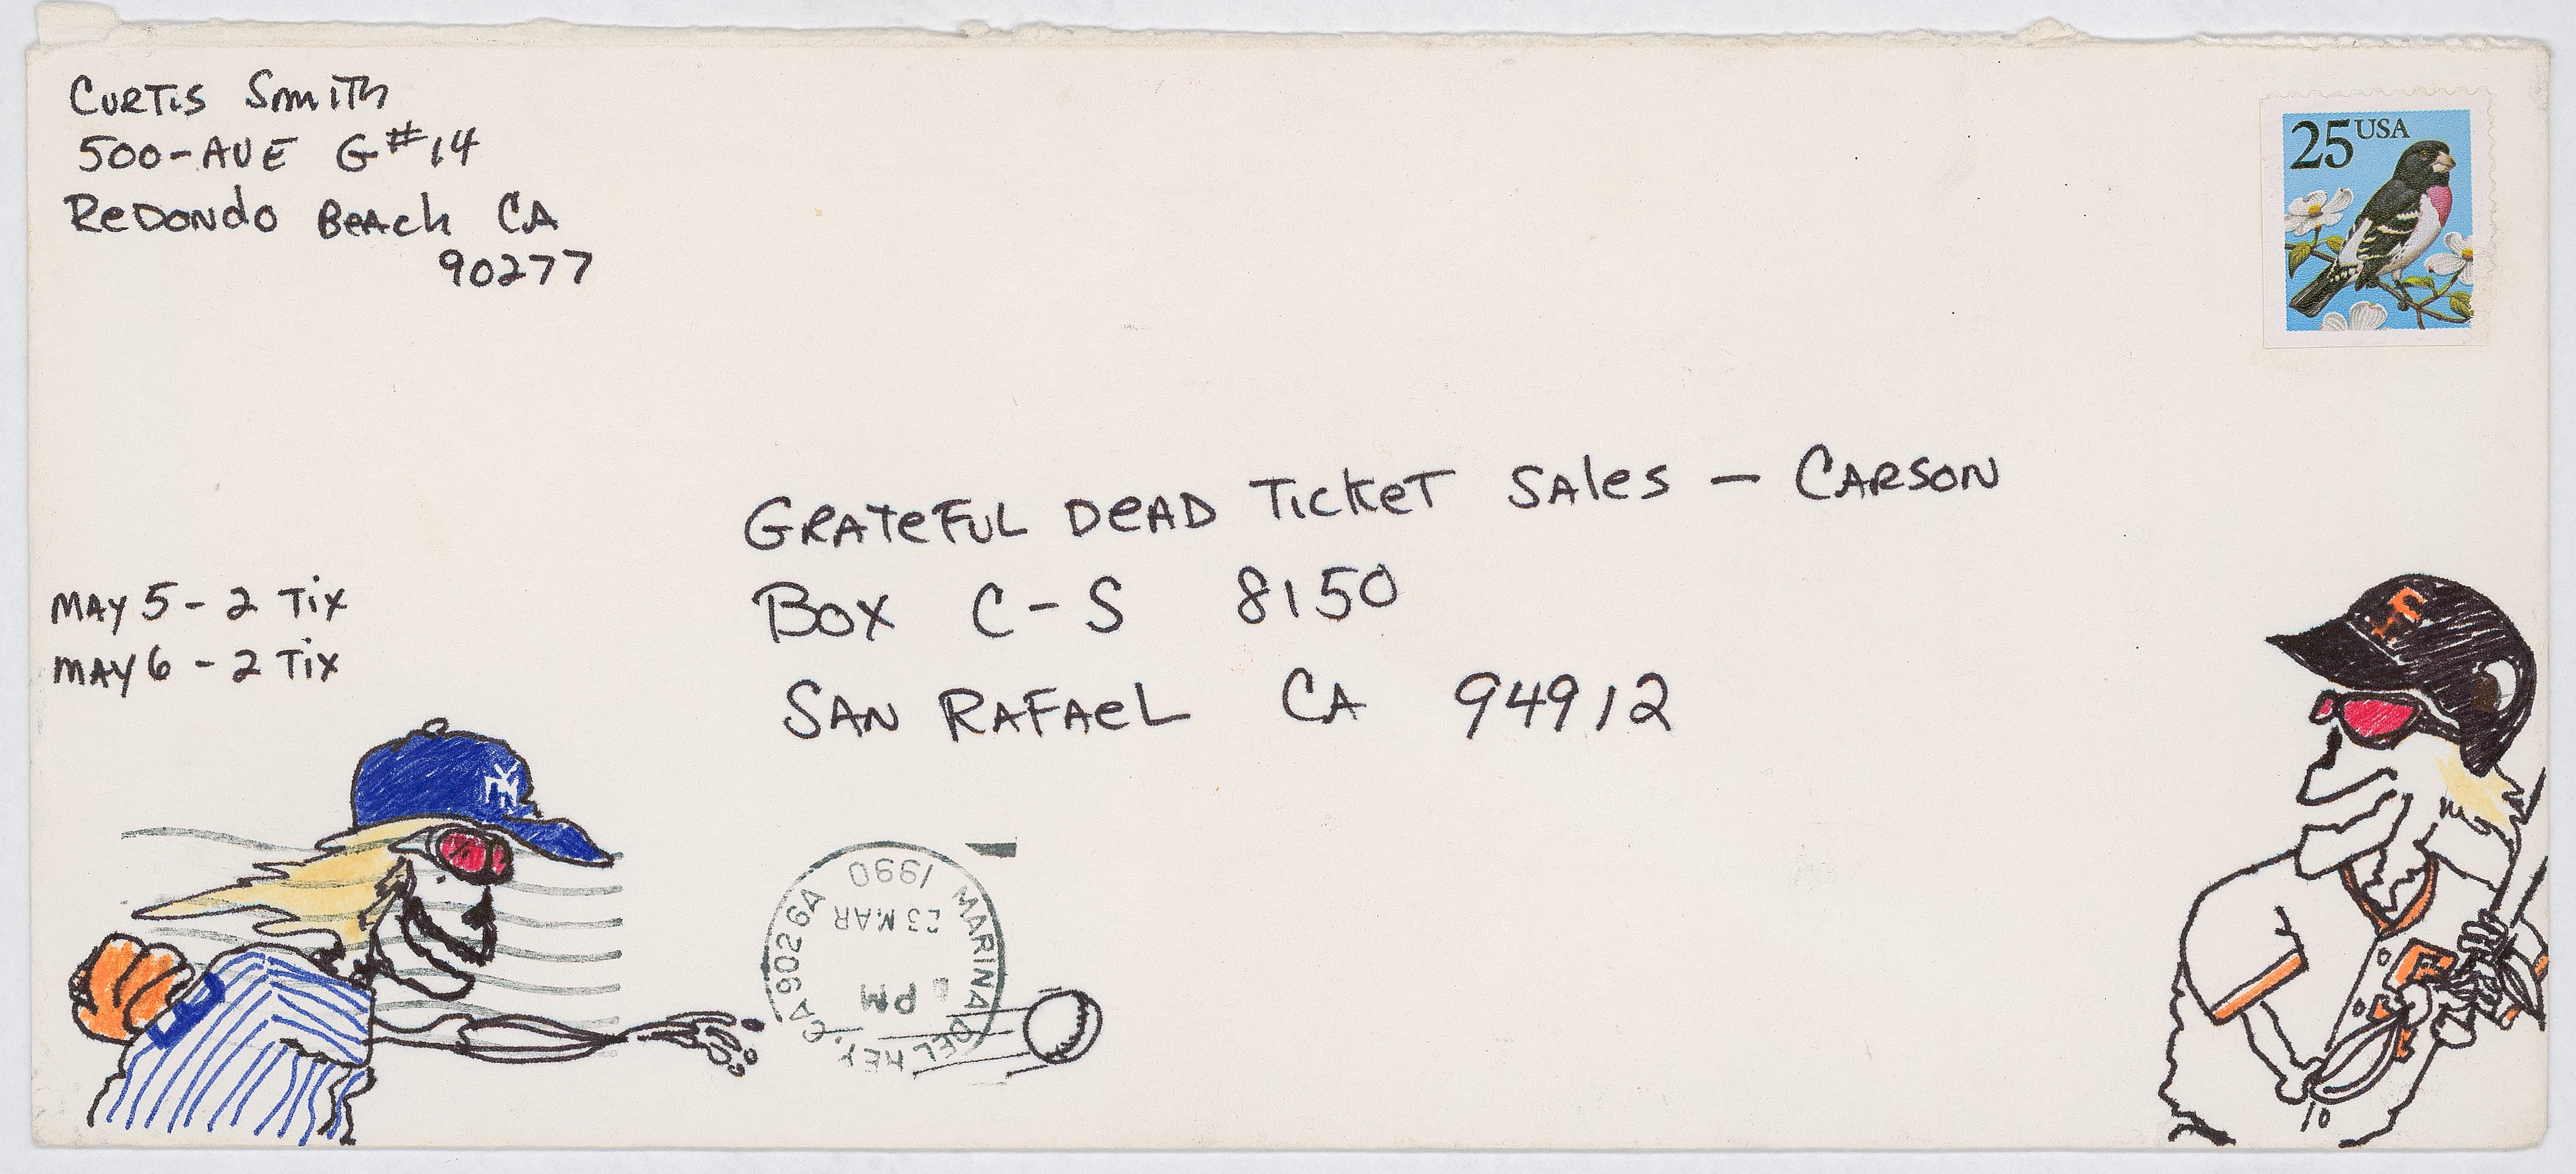 CURTIS SMITH
500-AVE G#14
REDONDO BEACH CA
90277
25 USA
GRATEFUL DEAD TICKET SALES — CARSON
BOX C-S 8150
SAN RAFAEL CA 94912
MAY 5 - 2 TIX
MAY 6 - 2 TIX
NY
MARINA DEL REY, CA 90264
PM
23 MAR
1990
10